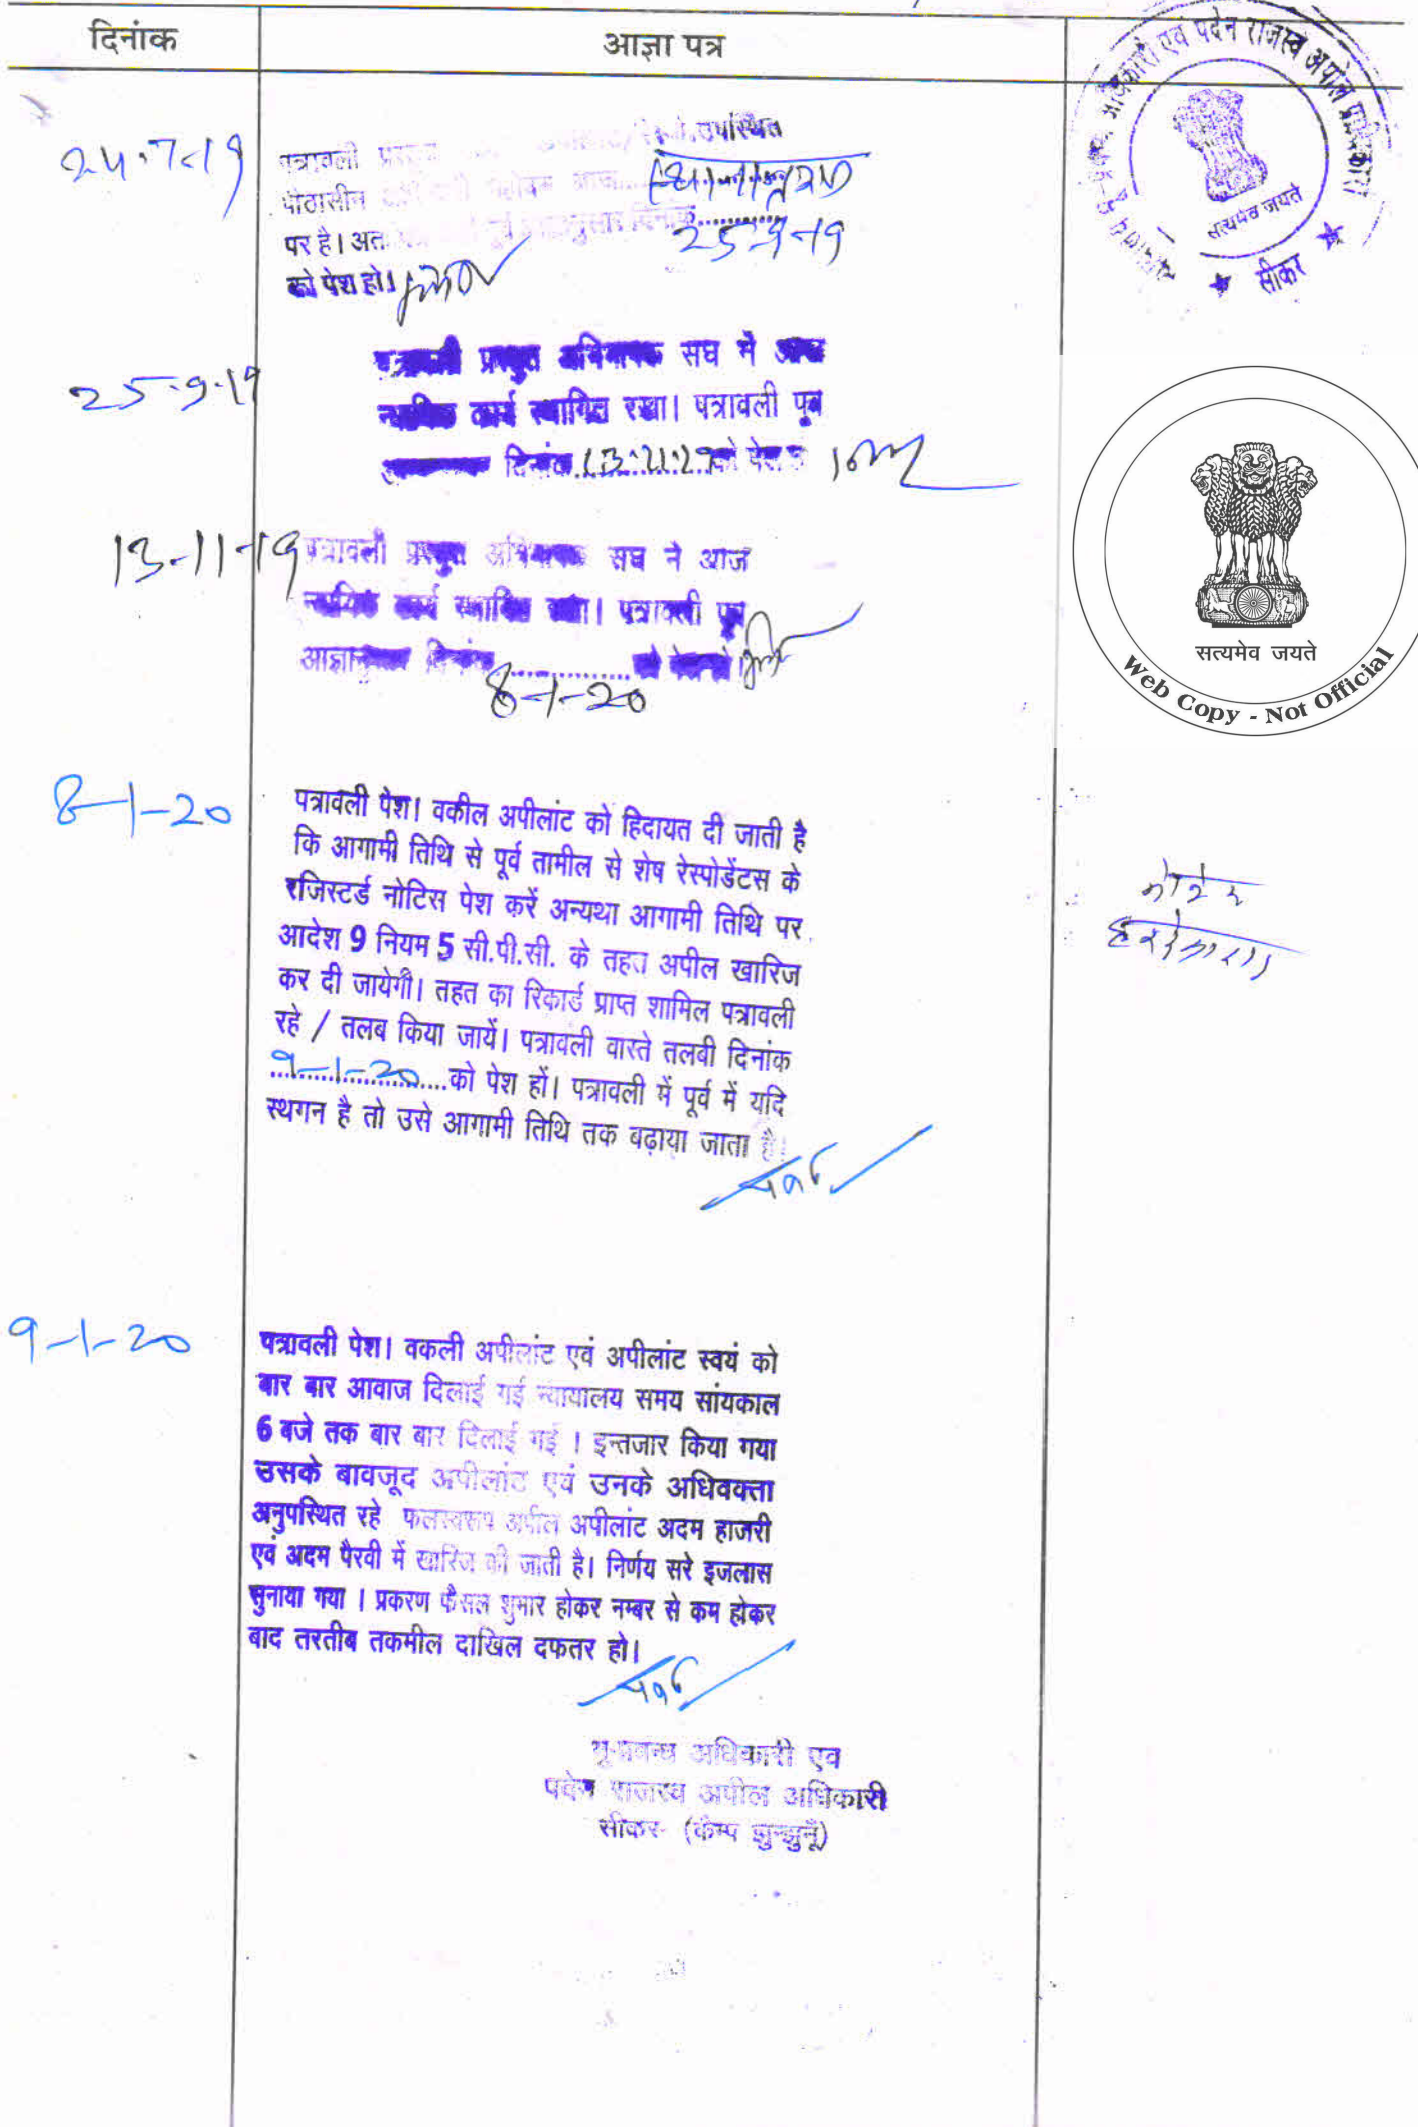 दिनांक
आज्ञा पत्र
एवं पदेन राजस्व अपील
सत्यमेव जयते
सीकर
24.7.19
पत्रावली उपस्थित
पीठासीन आज
पर है। अतः दिनांक
25-9-19
को पेश हो।
25.9.19
पत्रावली प्रस्तुत अभिभाषक संघ ने आज
न्यायिक कार्य स्थागित रखा। पत्रावली पूर्व
दिनांक को पेश
सत्यमेव जयते
Web Copy - Not Official
13-11-19
पत्रावली प्रस्तुत अभिभाषक संघ ने आज
न्यायिक कार्य स्थागित रखा। पत्रावली पूर्व
आज्ञानुसार दिनांक .................. को पेश हो।
8-1-20
8-1-20
पत्रावली पेश। वकील अपीलांट को हिदायत दी जाती है
कि आगामी तिथि से पूर्व तामील से शेष रेस्पोडेंटस के
रजिस्टर्ड नोटिस पेश करें अन्यथा आगामी तिथि पर
आदेश 9 नियम 5 सी.पी.सी. के तहत अपील खारिज
कर दी जायेगी। तहत का रिकार्ड प्राप्त शामिल पत्रावली
रहे / तलब किया जायें। पत्रावली वास्ते तलबी दिनांक
9-1-20 को पेश हों। पत्रावली में पूर्व में यदि
स्थगन है तो उसे आगामी तिथि तक बढ़ाया जाता है।
9-1-20
पत्रावली पेश। वकली अपीलांट एवं अपीलांट स्वयं को
बार बार आवाज दिलाई गई न्यायालय समय सांयकाल
6 बजे तक बार बार दिलाई गई । इन्तजार किया गया
उसके बावजूद अपीलांट एवं उनके अधिवक्ता
अनुपस्थित रहे फलस्वरूप अपील अपीलांट अदम हाजरी
एवं अदम पैरवी में खारिज की जाती है। निर्णय सरे इजलास
सुनाया गया । प्रकरण फैसल शुमार होकर नम्बर से कम होकर
बाद तरतीब तकमील दाखिल दफतर हो।
भू-प्रबन्ध अधिकारी एवं
पदेन राजस्व अपील अधिकारी
सीकर (कैम्प झुन्झुनूँ)